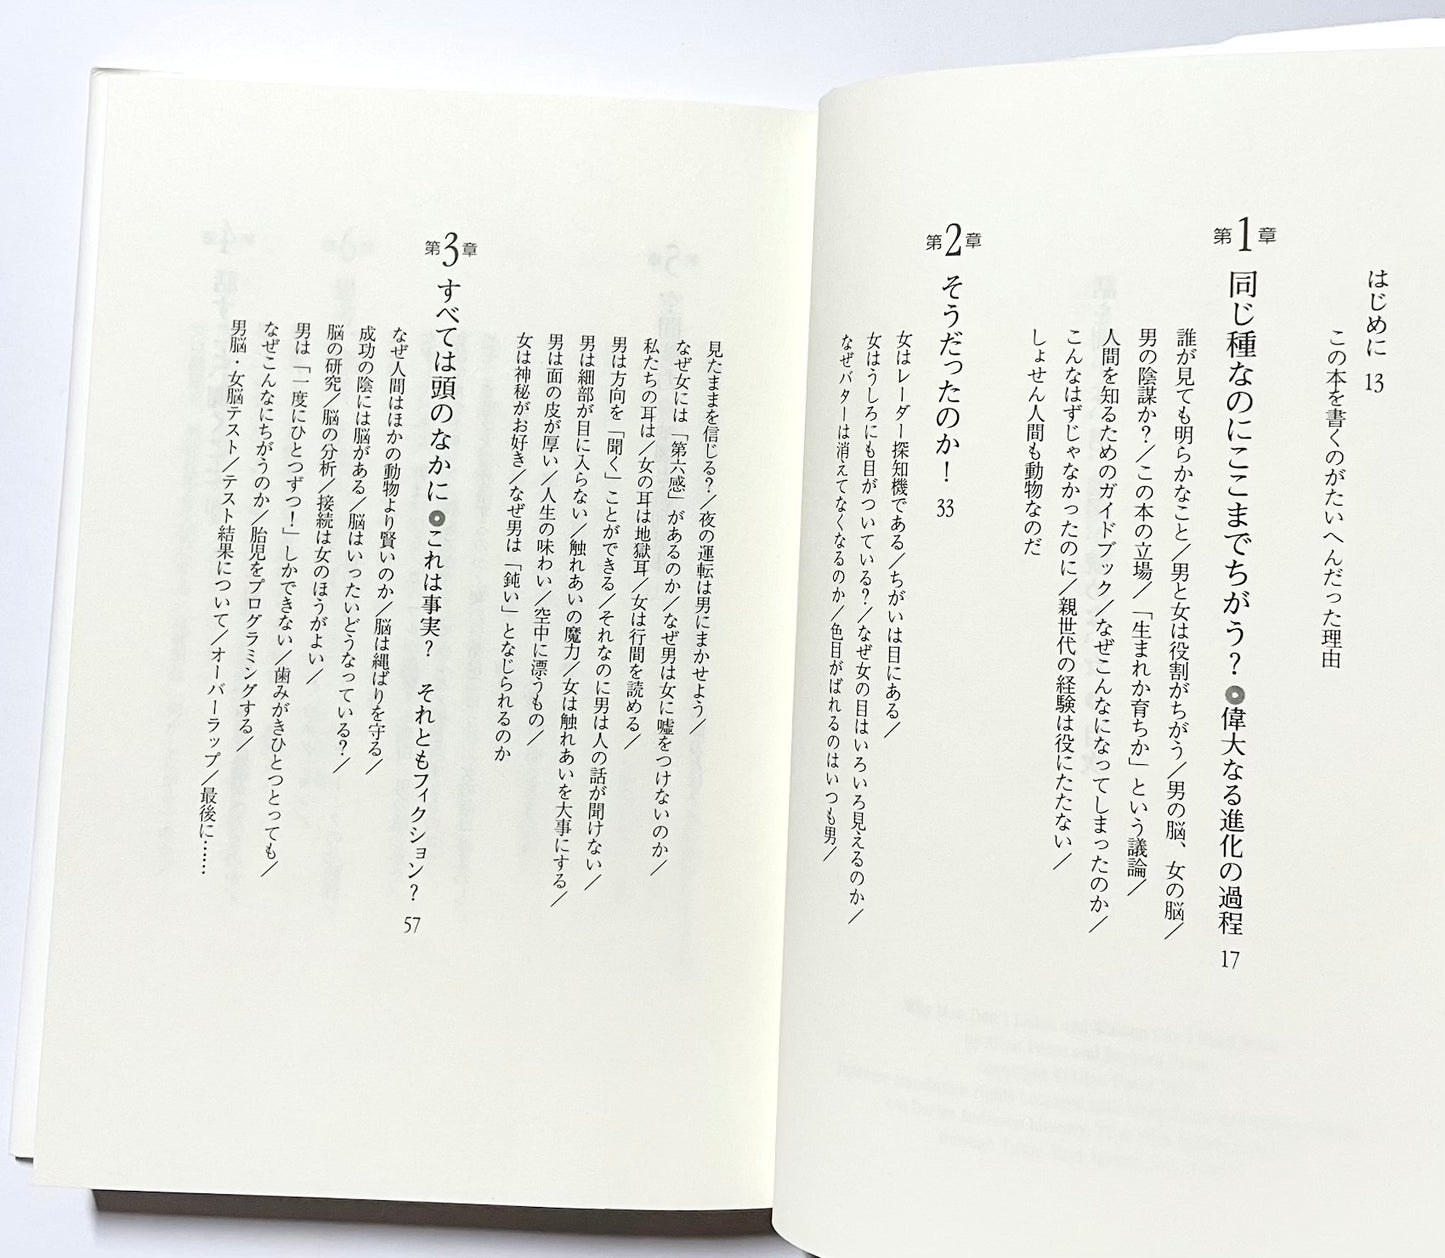 はじめに 13
この本を書くのがたいへんだった理由
第1章 同じ種なのにここまでちがう?◉偉大なる進化の過程 17
誰が見ても明らかなこと/男と女は役割がちがう/男の脳、女の脳/
男の陰謀か?/この本の立場/「生まれか育ちか」という議論/
人間を知るためのガイドブック/なぜこんなになってしまったのか/
こんなはずじゃなかったのに/親世代の経験は役にたたない/
しょせん人間も動物なのだ
第2章 そうだったのか! 33
女はレーダー探知機である/ちがいは目にある/
女はうしろにも目がついている?/なぜ女の目はいろいろ見えるのか/
なぜバターは消えてなくなるのか/色目がばれるのはいつも男/
見たままを信じる?/夜の運転は男にまかせよう/
なぜ女には「第六感」があるのか/なぜ男は女に嘘をつけないのか/
私たちの耳は/女の耳は地獄耳/女は行間を読める/
男は方向を「聞く」ことができる/それなのに男は人の話が聞けない/
男は細部が目に入らない/触れあいの魔力/女は触れあいを大事にする/
男は面の皮が厚い/人生の味わい/空中に漂うもの/
女は神秘がお好き/なぜ男は「鈍い」となじられるのか
第3章 すべては頭のなかに◉これは事実? それともフィクション? 57
なぜ人間はほかの動物より賢いのか/脳は縄ばりを守る/
成功の陰には脳がある/脳はいったいどうなっている?/
脳の研究/脳の分析/接続は女のほうがよい/
男は「一度にひとつずつ!」しかできない/歯みがきひとつとっても/
なぜこんなにちがうのか/胎児をプログラミングする/
男脳・女脳テスト/テスト結果について/オーバーラップ/最後に……